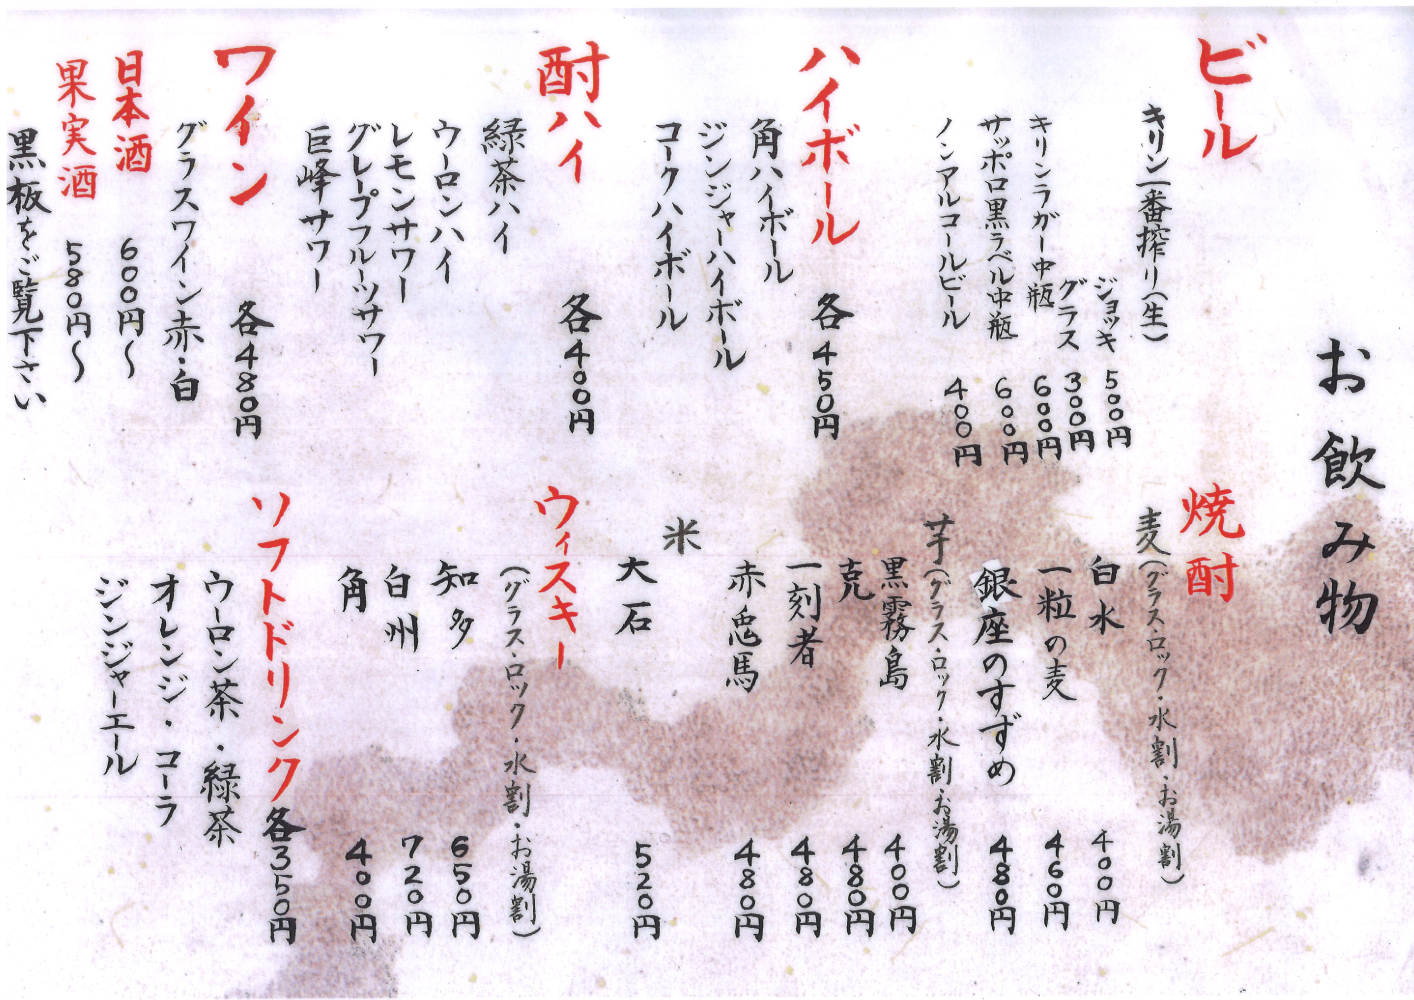 お飲み物
ビール
キリン一番搾り(生)
ジョッキ 500円
グラス 300円
キリンラガー中瓶 600円
サッポロ黒ラベル中瓶 600円
ノンアルコールビール 400円
ハイボール 各450円
角ハイボール
ジンジャーハイボール
コークハイボール
酎ハイ 各400円
緑茶ハイ
ウーロンハイ
レモンサワー
グレープフルーツサワー
巨峰サワー
ワイン 各480円
グラスワイン赤・白
日本酒 600円〜
果実酒 580円〜
黒板をご覧下さい
焼酎
麦(グラス・ロック・水割・お湯割)
白水 400円
一粒の麦 460円
銀座のすずめ 480円
芋(グラス・ロック・水割・お湯割)
黒霧島 400円
克 480円
一刻者 480円
赤兎馬 480円
米
大石 520円
ウィスキー
(グラス・ロック・水割・お湯割)
知多 650円
白州 720円
角 400円
ソフトドリンク 各350円
ウーロン茶・緑茶
オレンジ・コーラ
ジンジャーエール